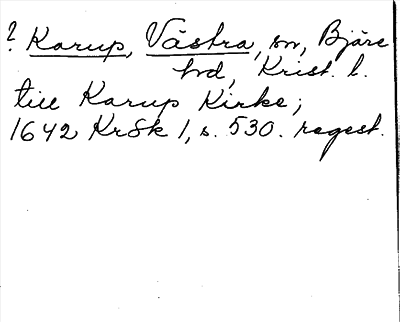 ? Karup, Västra, sn, Bjäre
hd, Krist. l.
till Karup Kirke;
1642 KrSk 1, s. 530. regest.